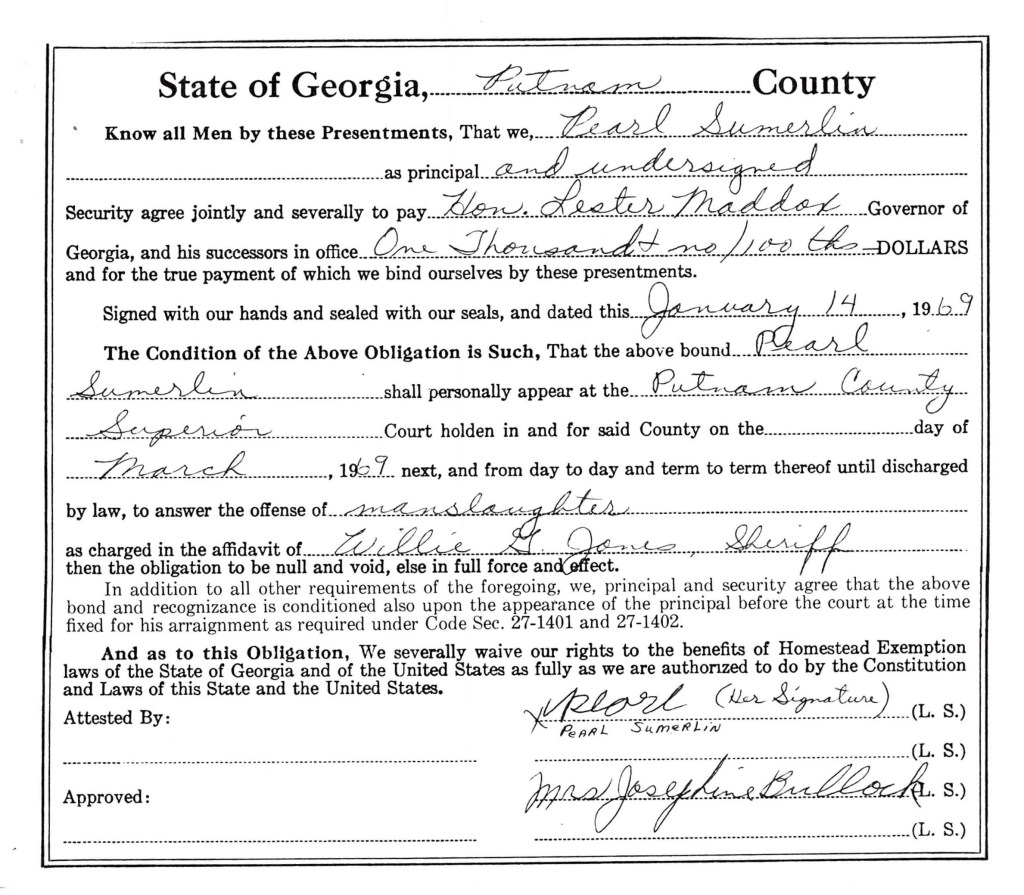 State of Georgia, Putnam County
Know all Men by these Presentments, That we, Pearl Sumerlin
as principal and undersigned
Security agree jointly and severally to pay Hon. Lester Maddox Governor of
Georgia, and his successors in office One Thousand & no/100 ths DOLLARS
and for the true payment of which we bind ourselves by these presentments.
Signed with our hands and sealed with our seals, and dated this January 14, 1969
The Condition of the Above Obligation is Such, That the above bound Pearl
Sumerlin shall personally appear at the Putnam County
Superior Court holden in and for said County on the day of
March, 1969 next, and from day to day and term to term thereof until discharged
by law, to answer the offense of manslaughter
as charged in the affidavit of Willie G. Jones, Sheriff
then the obligation to be null and void, else in full force and effect.
In addition to all other requirements of the foregoing, we, principal and security agree that the above
bond and recognizance is conditioned also upon the appearance of the principal before the court at the time
fixed for his arraignment as required under Code Sec. 27-1401 and 27-1402.
And as to this Obligation, We severally waive our rights to the benefits of Homestead Exemption
laws of the State of Georgia and of the United States as fully as we are authorized to do by the Constitution
and Laws of this State and the United States.
Attested By: X Pearl (Her Signature) (L. S.)
PEARL SUMERLIN
(L. S.)
Approved: Mrs Josephine Bullock (L. S.)
(L. S.)